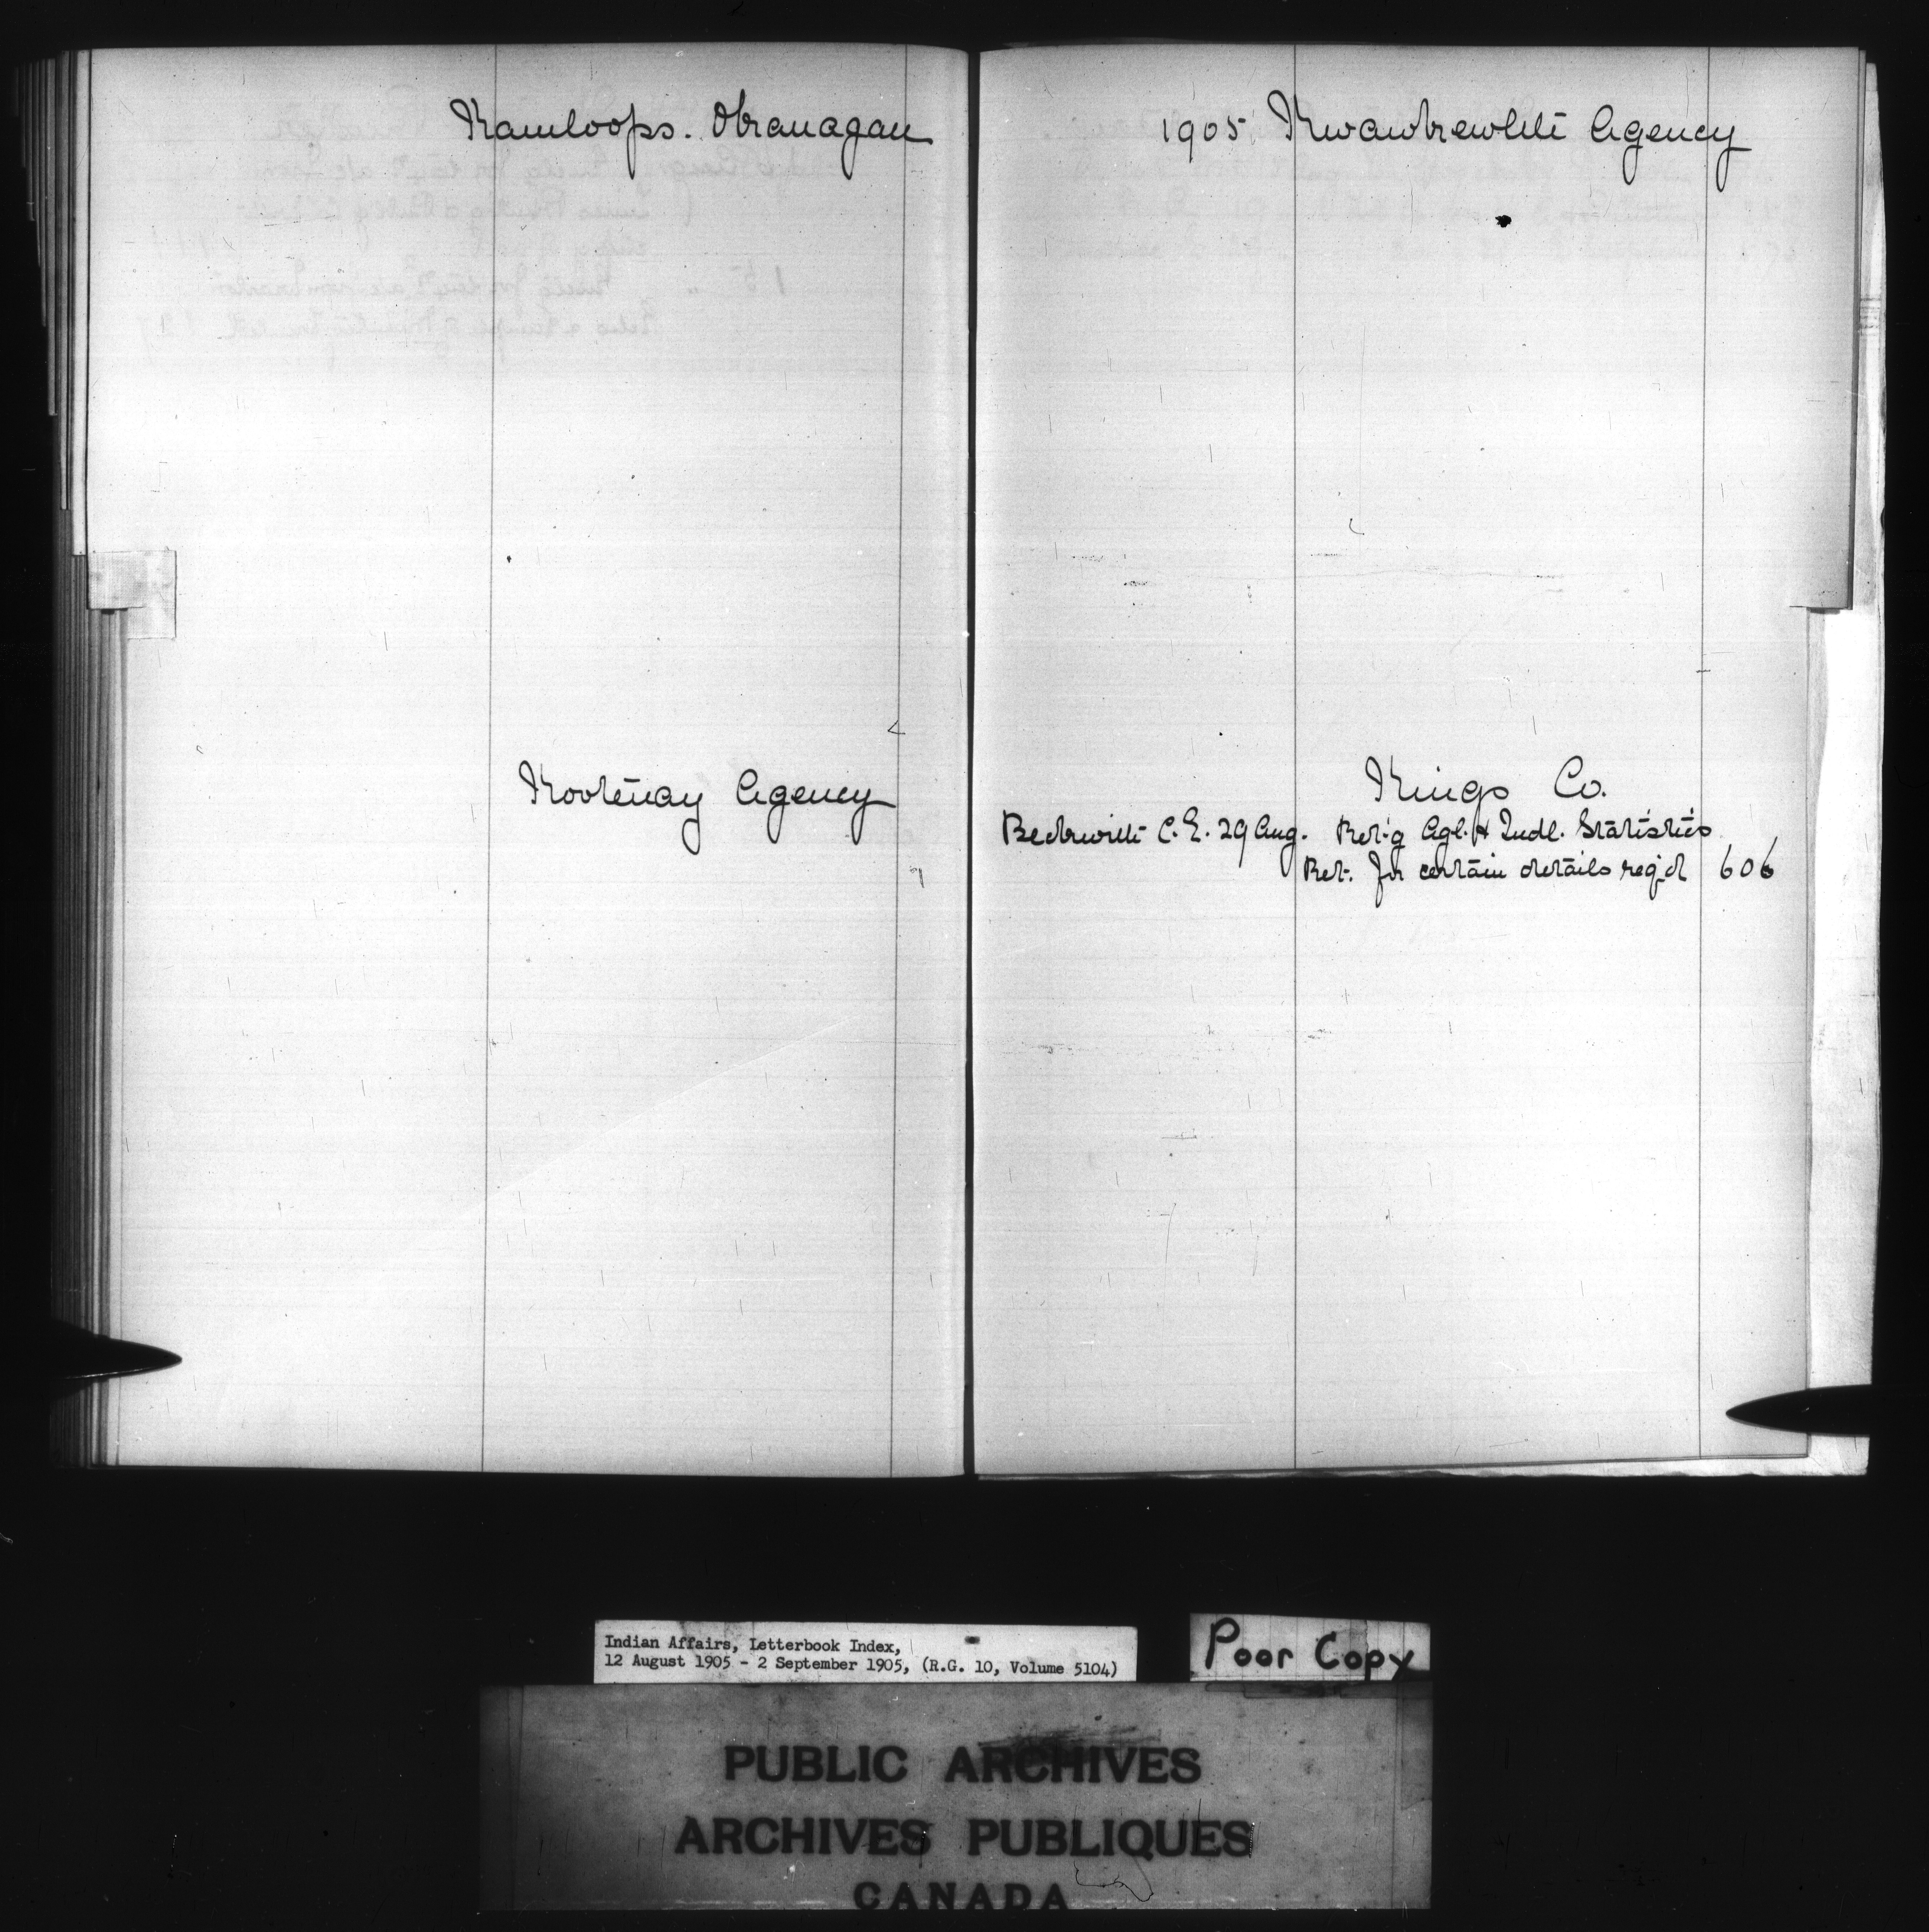 Kamloops. Okanagan
Kootenay Agency
1905 Kwawkewlth Agency
Kings Co.
Beckwith C.E. 29 Aug. Ret'g Agl. & Indl. Statistics
Ret. for certain details req'd 606
Indian Affairs, Letterbook Index,
12 August 1905 - 2 September 1905, (R.G. 10, Volume 5104)
Poor Copy
PUBLIC ARCHIVES
ARCHIVES PUBLIQUES
CANADA